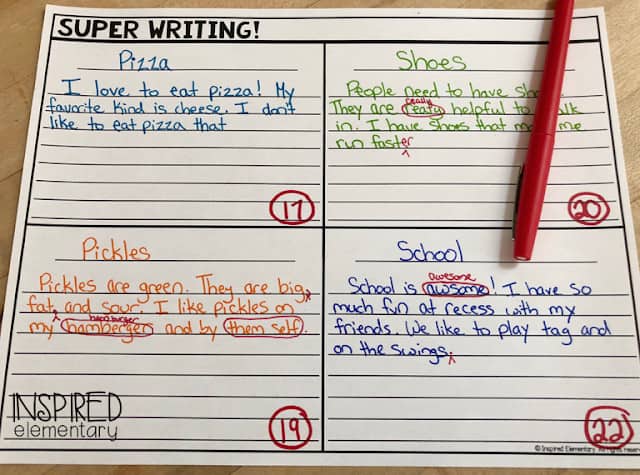 SUPER WRITING!
Pizza
I love to eat pizza! My
favorite kind is cheese. I don't
like to eat pizza that
17
Shoes
People need to have
really
They are realy helpful to
in. I have shoes that me
run faster
20
Pickles
Pickles are green. They are big,
fat, and sour. I like pickles on
hamburger
my hamberger and by them self.
19
School
awesome
School is awsome! I have so
much fun at recess with my
friends. We like to play tag and
on the swings.
22
INSPIRED
elementary
© Inspired Elementary. All rights